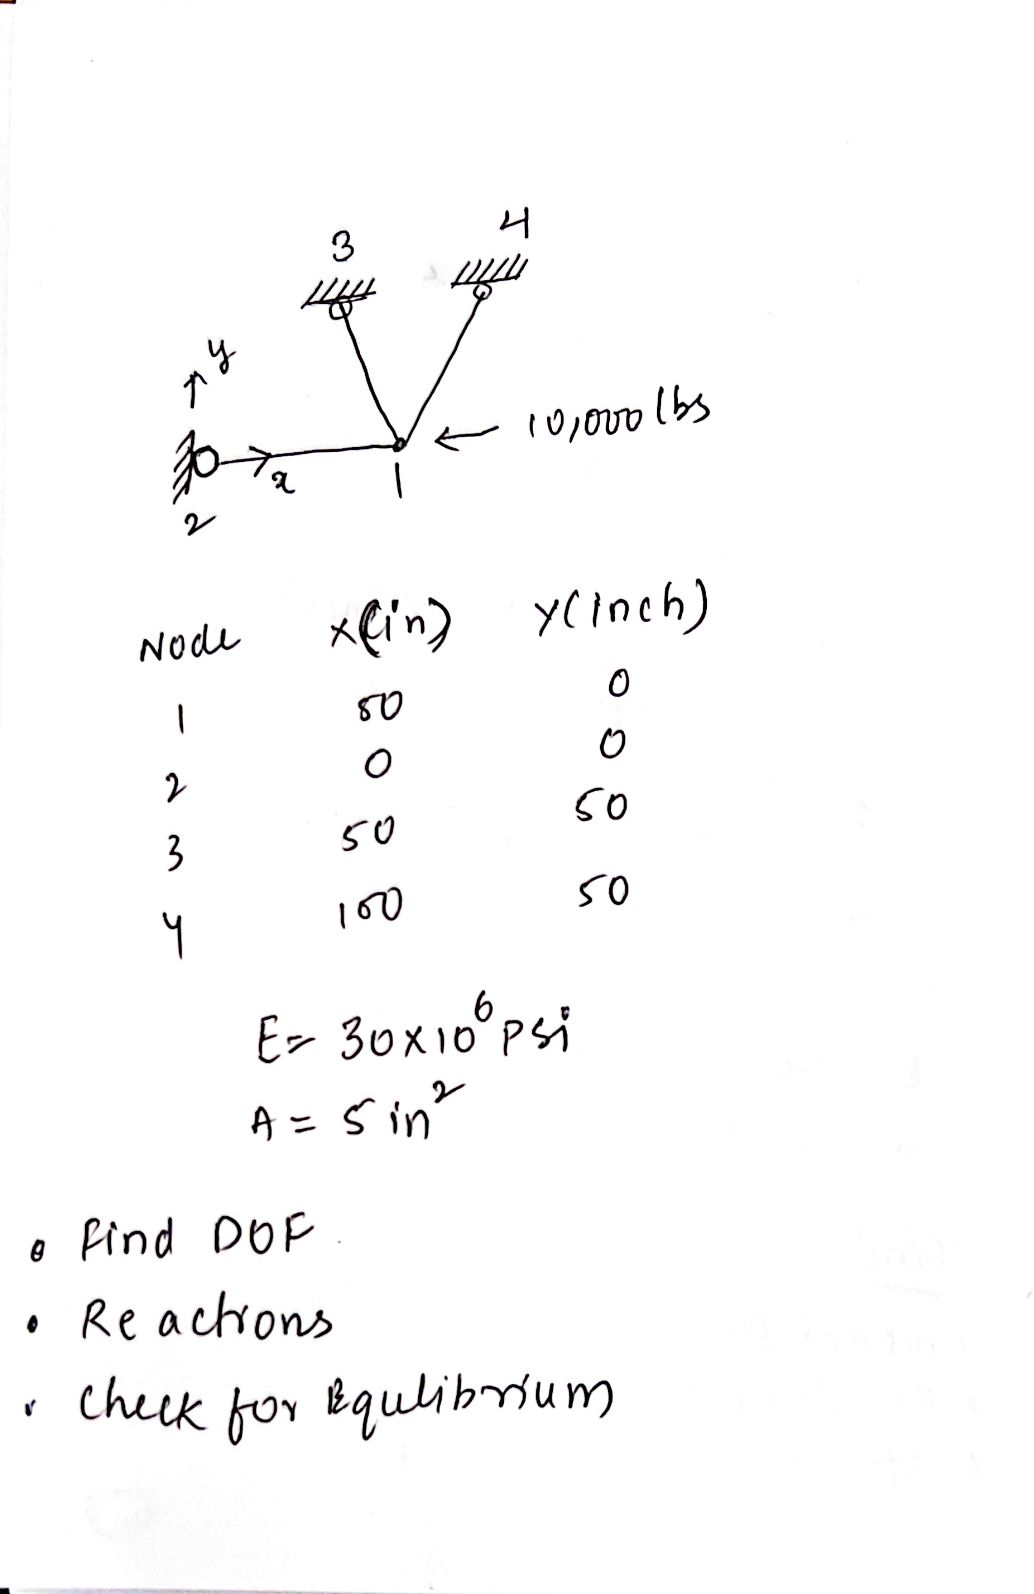 3
4
y
10,000 lbs
x
1
2
Node x(in) y(inch)
1 80 0
2 0 0
3 50 50
4 100 50
E= 30x10⁶ psi
A = 5 in²
• Find DOF
• Reactions
• Check for Equlibrium